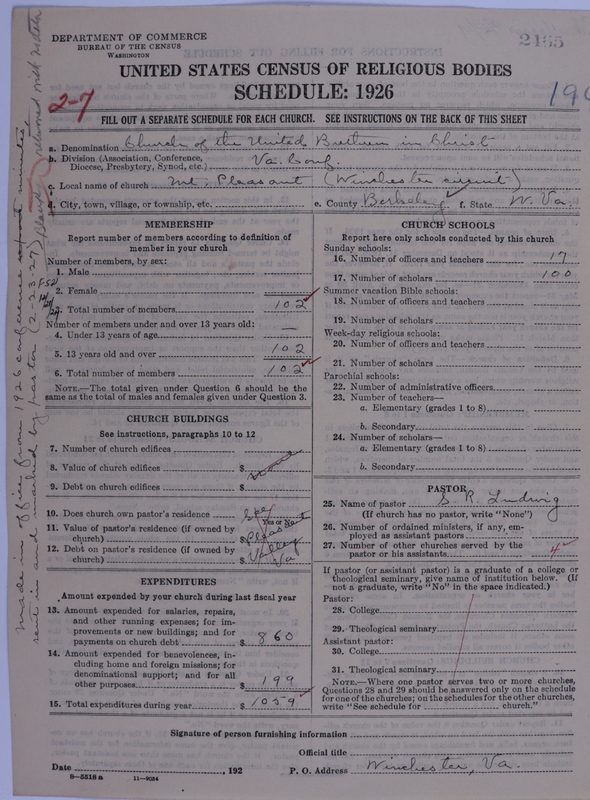 DEPARTMENT OF COMMERCE
BUREAU OF THE CENSUS
WASHINGTON
2465
UNITED STATES CENSUS OF RELIGIOUS BODIES
SCHEDULE: 1926
2-7
190
FILL OUT A SEPARATE SCHEDULE FOR EACH CHURCH. SEE INSTRUCTIONS ON THE BACK OF THIS SHEET
a. Denomination Church of the United Brethren in Christ
b. Division (Association, Conference, Diocese, Presbytery, Synod, etc.) Va. Conf.
c. Local name of church Mt. Pleasant (Winchester circuit)
d. City, town, village, or township, etc. e. County Berkeley f. State W. Va.
MEMBERSHIP
Report number of members according to definition of member in your church
Number of members, by sex:
1. Male
2. Female
3. Total number of members 102
Number of members under and over 13 years old:
4. Under 13 years of age —
5. 13 years old and over 102
6. Total number of members 102
NOTE.—The total given under Question 6 should be the same as the total of males and females given under Question 3.
CHURCH BUILDINGS
See instructions, paragraphs 10 to 12
7. Number of church edifices
8. Value of church edifices $ none
9. Debt on church edifices $
10. Does church own pastor's residence See
Yes or No
11. Value of pastor's residence (if owned by church) $ Pleasant
12. Debt on pastor's residence (if owned by church) $ Valley Va
EXPENDITURES
Amount expended by your church during last fiscal year
13. Amount expended for salaries, repairs, and other running expenses; for improvements or new buildings; and for payments on church debt $ 860
14. Amount expended for benevolences, including home and foreign missions; for denominational support; and for all other purposes $ 199
15. Total expenditures during year $ 1059
CHURCH SCHOOLS
Report here only schools conducted by this church
Sunday schools:
16. Number of officers and teachers 17
17. Number of scholars 100
Summer vacation Bible schools:
18. Number of officers and teachers
19. Number of scholars
Week-day religious schools:
20. Number of officers and teachers
21. Number of scholars
Parochial schools:
22. Number of administrative officers
23. Number of teachers—
a. Elementary (grades 1 to 8)
b. Secondary
24. Number of scholars—
a. Elementary (grades 1 to 8)
b. Secondary
PASTOR
25. Name of pastor S. R. Ludwig
(If church has no pastor, write "None")
26. Number of ordained ministers, if any, employed as assistant pastors
27. Number of other churches served by the pastor or his assistants 4
If pastor (or assistant pastor) is a graduate of a college or theological seminary, give name of institution below. (If not a graduate, write "No" in the space indicated.)
Pastor:
28. College
29. Theological seminary
Assistant pastor:
30. College
31. Theological seminary
NOTE.—Where one pastor serves two or more churches, Questions 28 and 29 should be answered only on the schedule for one of the churches; on the schedules for the other churches, write "See schedule for church."
Signature of person furnishing information
Official title
Date , 192 P. O. Address Winchester, Va.
8-5518 a 11-9054
made in office from 1926 conference report minutes
sent in and marked by pastor (2-23-27)